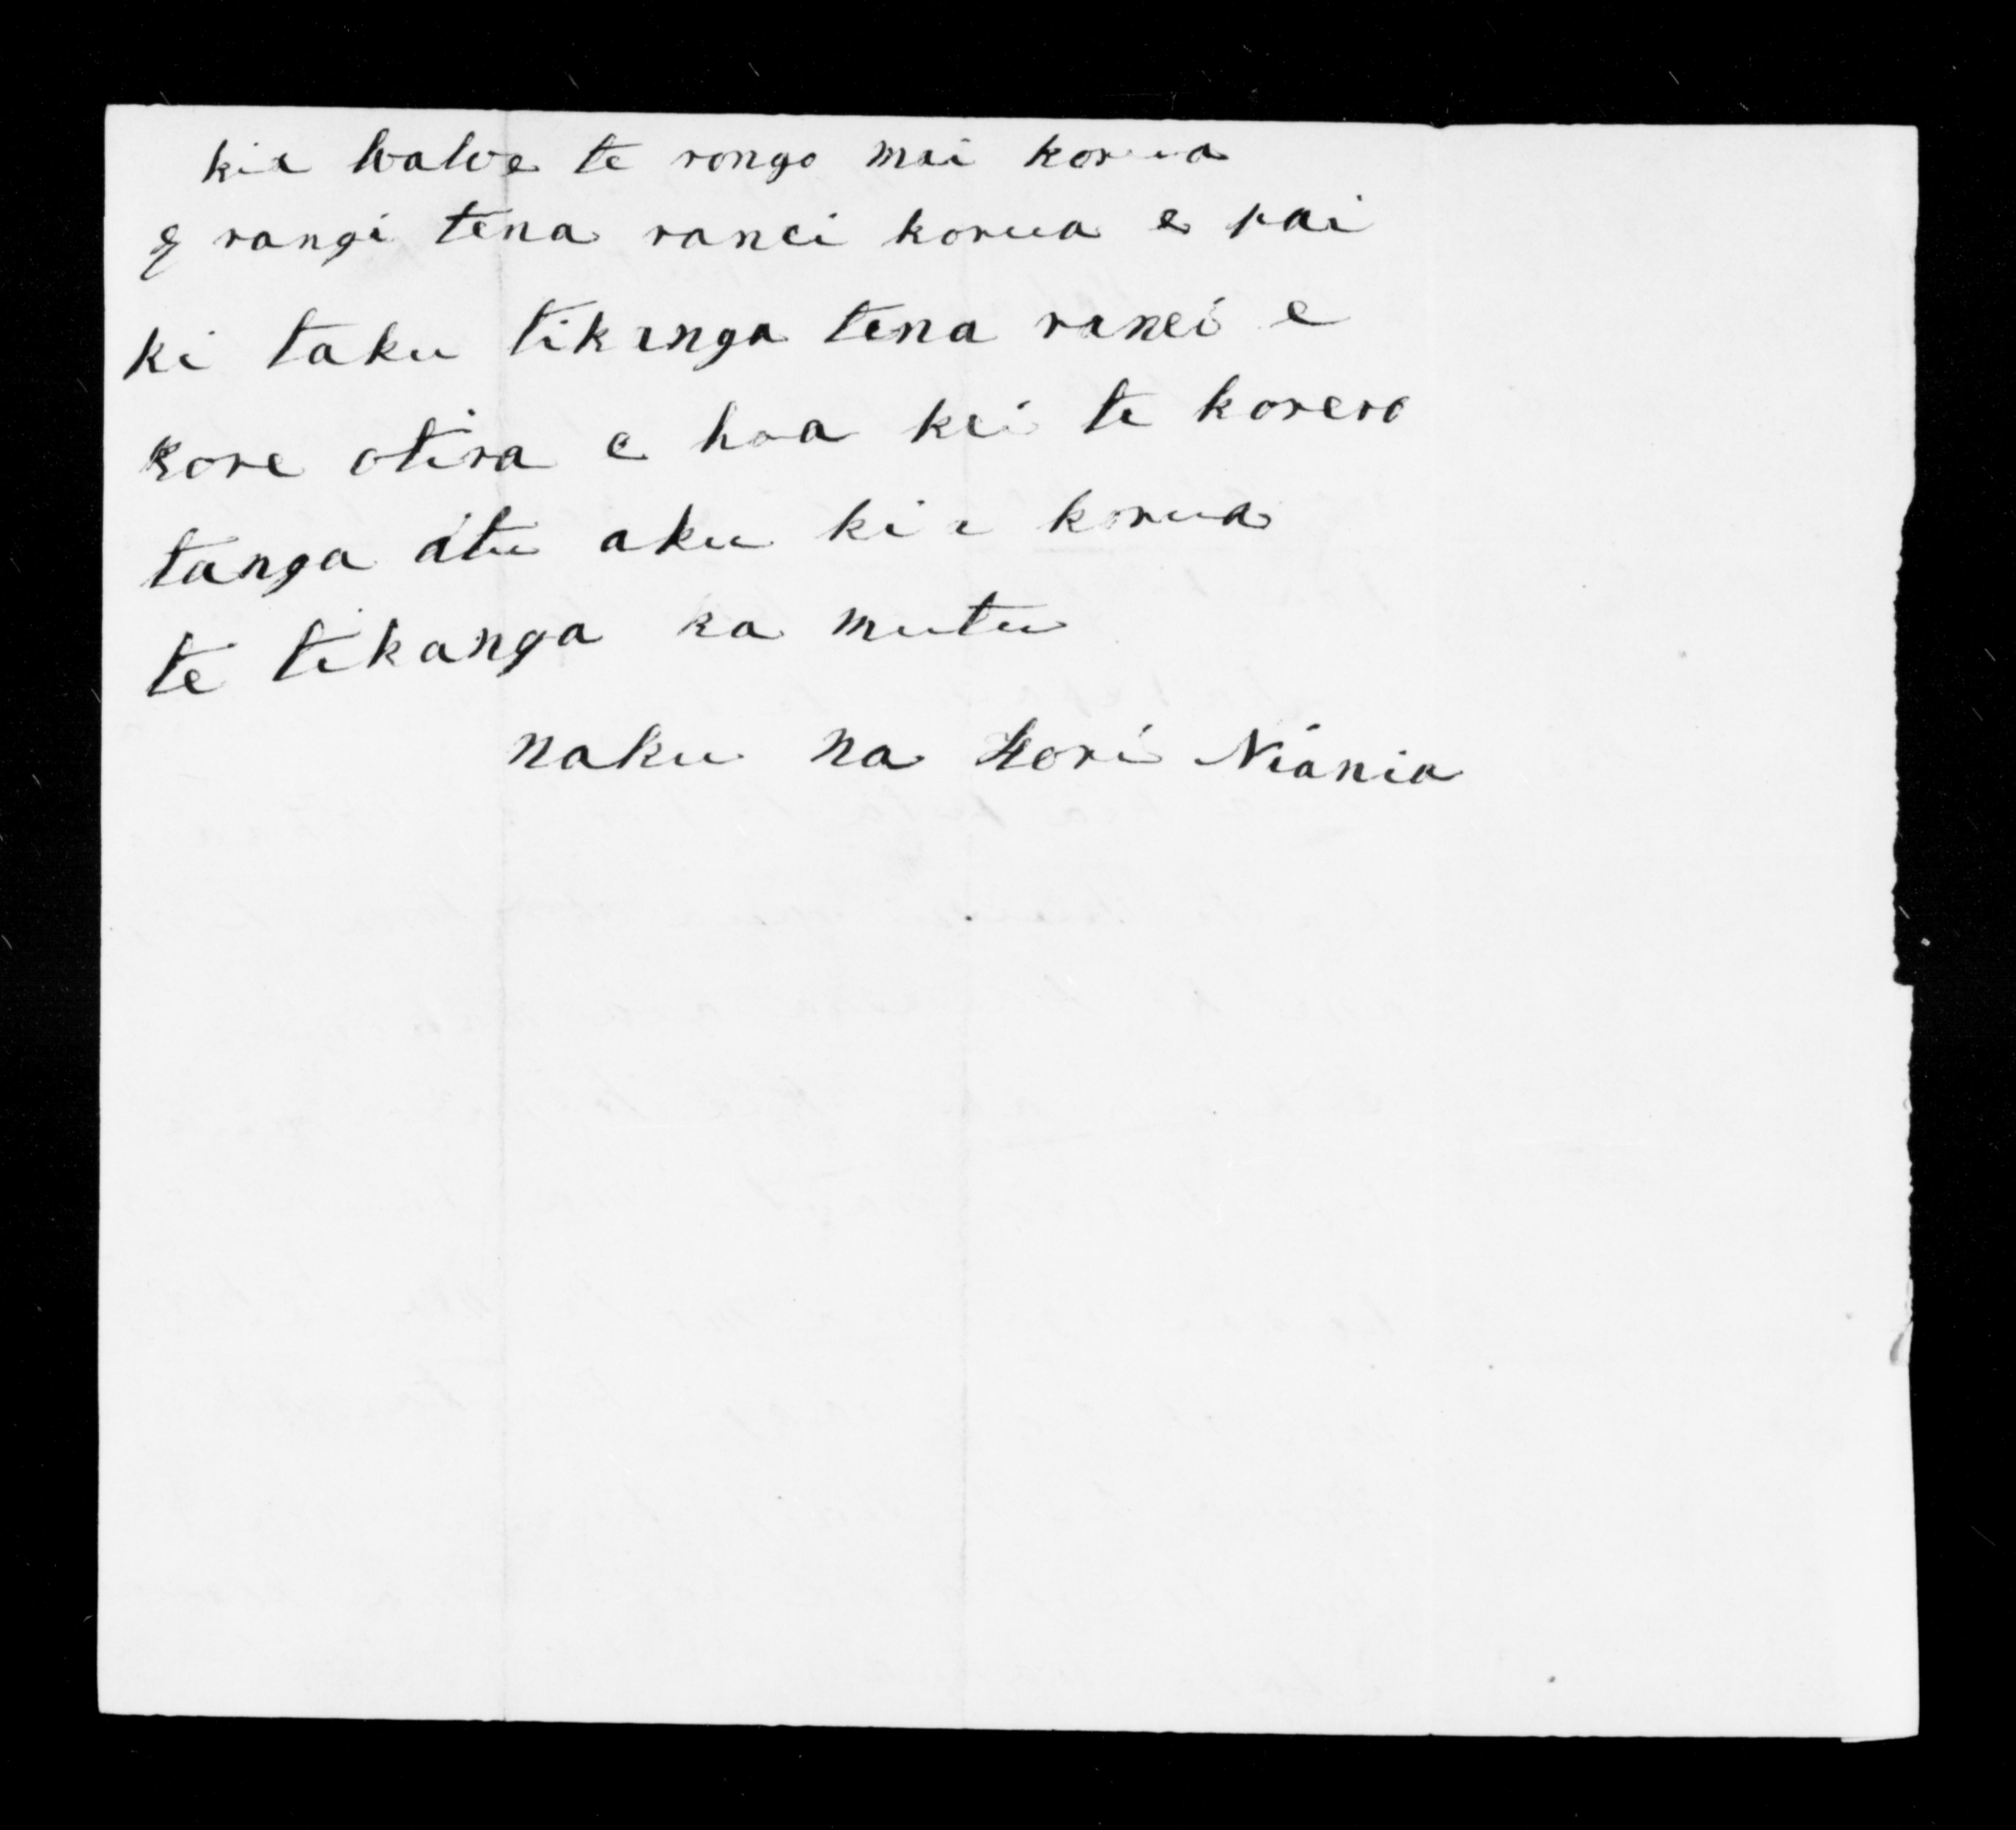 kia wawe te rongo mai korua
e rangi tena ranei korua e pai
ki taku tikanga tena ranei e
kore otira e hoa kei te korero
tanga atu aku ki a korua
te tikanga ka mutu
naku na Hori Niania